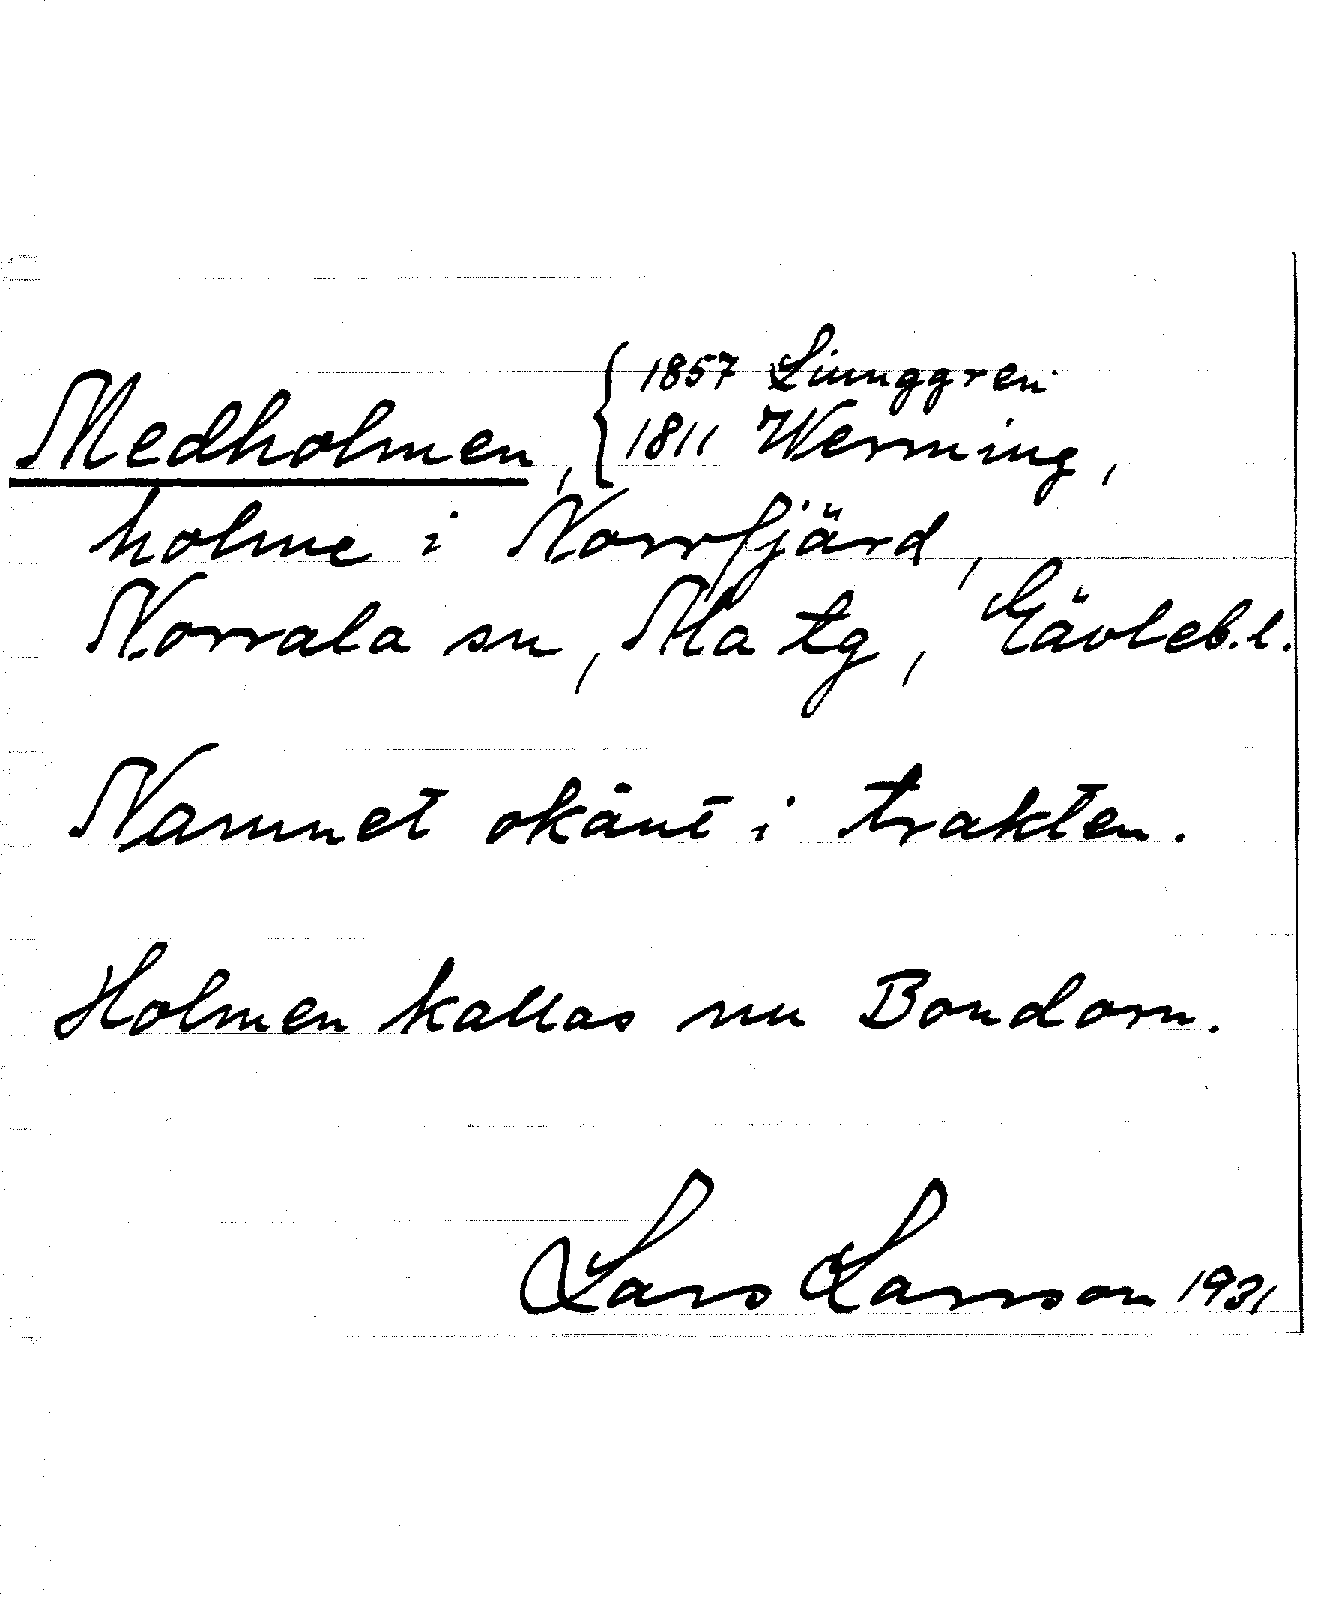 Medholmen, { 1857 Liunggren
1811 Werming,
holme i Norrfjärd,
Norrala sn, Ala tg, Gävleb.l.
Namnet okänt i trakten.
Holmen kallas nu Bondorn.
Lars Larsson 1931